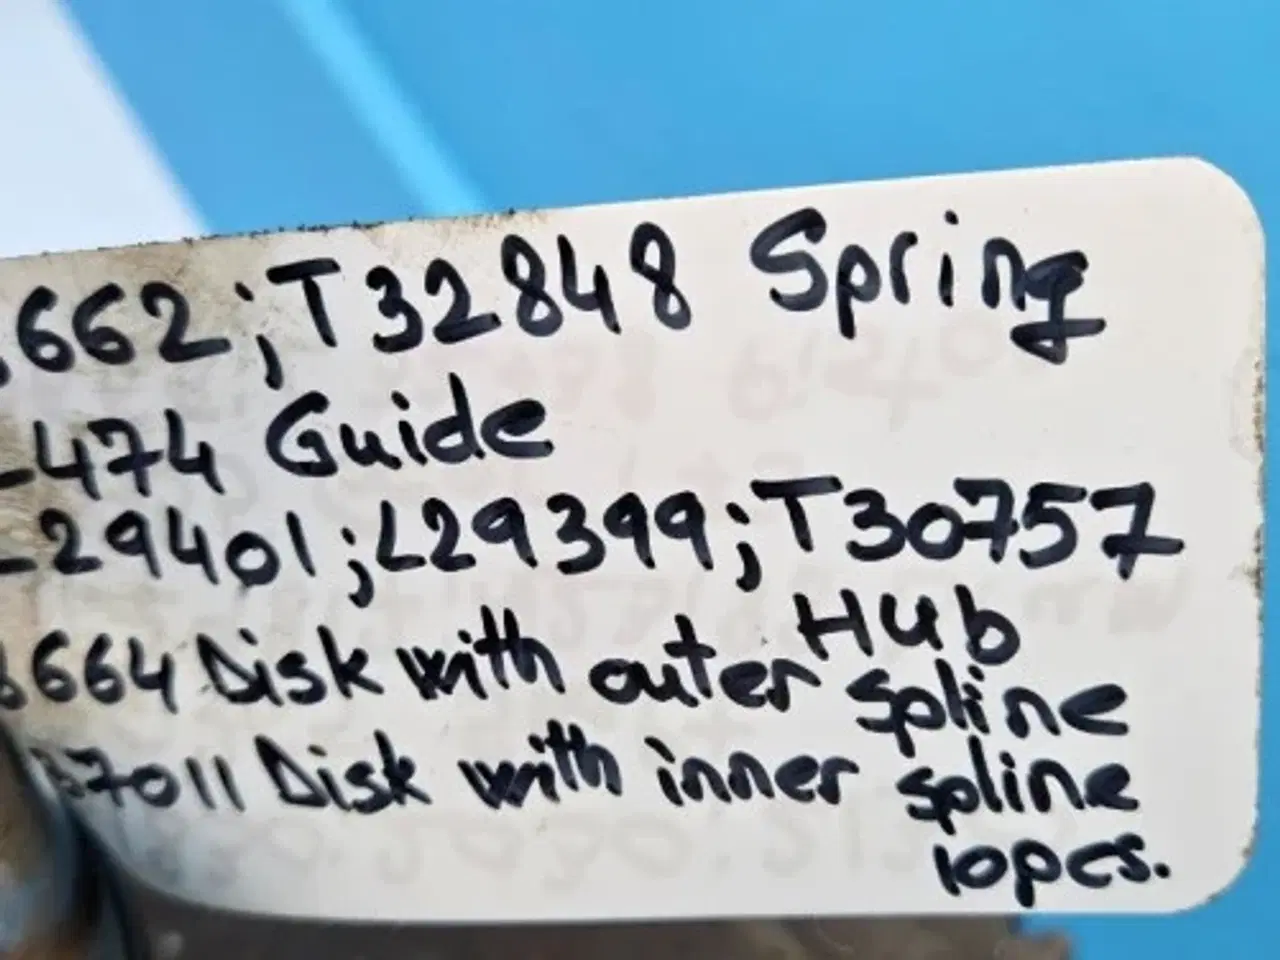 662;T32848 Spring
-474 Guide
29401;L29399;T30757
Hub
664 Disk with outer spline
7011 Disk with inner spline
10pcs.